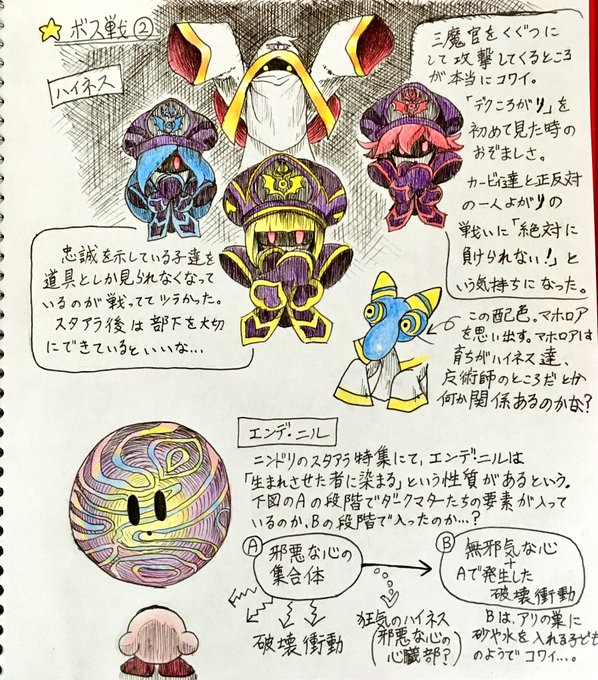 ボス戦②
ハイネス
三魔官をくぐつに
して攻撃してくるところ
が本当にコワイ。
「デクころがり」を
初めて見た時の
おぞましさ。
カービィ達と正反対
の一人よがりの
戦いに「絶対に
負けられない!」と
いう気持ちになった。
忠誠を示している子達を
道具としか見られなくなって
いるのが戦っててツラかった。
スタアラ後は部下を大切
にできているといいな…
この配色。マホロア
を思い出す。マホロアは
育ちがハイネス達、
魔術師のところだとか
何か関係あるのかな?
エンデ・ニル
ニンドリのスタアラ特集にて、エンデ・ニルは
「生まれさせた者に染まる」という性質があるという。
下図のAの段階でダークマターたちの要素が入って
いるのか、Bの段階で入ったのか…?
A
邪悪な心の
集合体
破壊衝動
狂気のハイネス
(邪悪な心の
心臓部?)
B
無邪気な心
+
Aで発生した
破壊衝動
Bは、アリの巣に
砂や水を入れる子ども
のようでコワイ…。